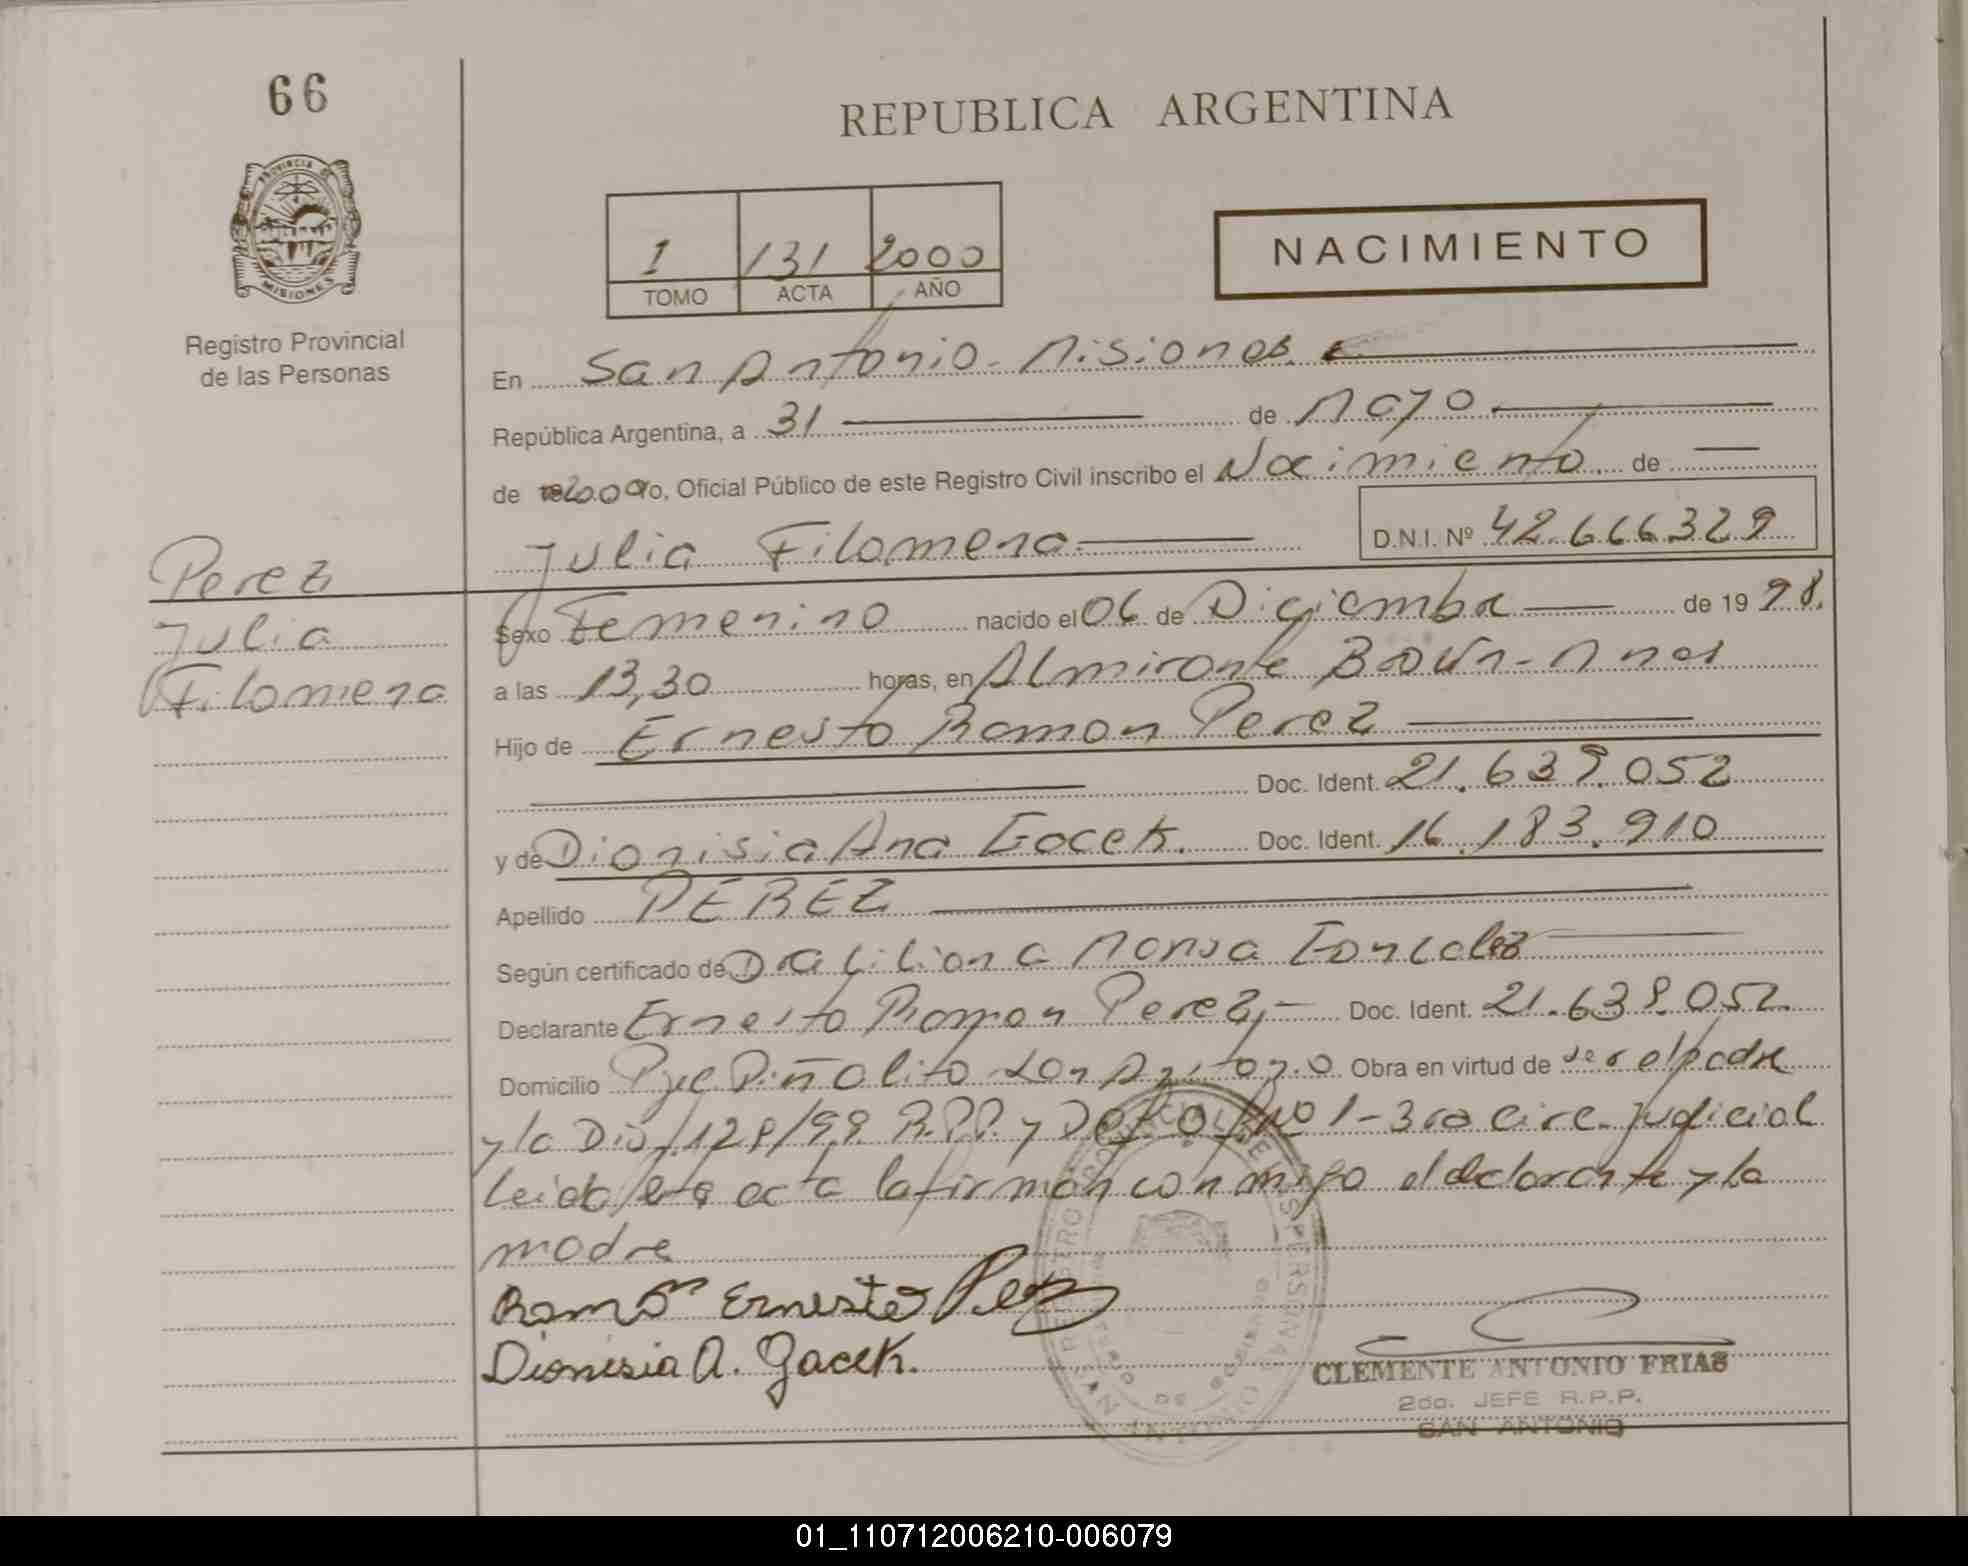 66
REPUBLICA ARGENTINA
PROVINCIA DE
MISIONES
Registro Provincial
de las Personas
1 131 2000
TOMO ACTA AÑO
NACIMIENTO
En San Antonio - Misiones
República Argentina, a 31 de Mayo
de 2000 yo, Oficial Público de este Registro Civil inscribo el Nacimiento de
Julia Filomena D.N.I. Nº 42.666.329
Perez
Julia
Filomena
Sexo Femenino nacido el 06 de Diciembre de 1998.
a las 13,30 horas, en Almirante Brown - Mnes
Hijo de Ernesto Ramon Perez
Doc. Ident. 21.639.052
y de Dionisia Ana Gacek. Doc. Ident. 16.183.910
Apellido PEREZ
Según certificado de Dra Liliana Gonzalez
Declarante Ernesto Ramon Perez, Doc. Ident. 21.639.052
Domicilio Pje Piñalito San Antonio Obra en virtud de ser el padre
y la 129/99 R.P.P. y Nº 1 - 3ra Circ. Judicial
Leida esta acta la firman conmigo el declarante y la
madre
Ramón Ernesto Perez
Dionisia A. Gacek.
CLEMENTE ANTONIO FRIAS
2do. JEFE R.P.P.
SAN ANTONIO
01_110712006210-006079